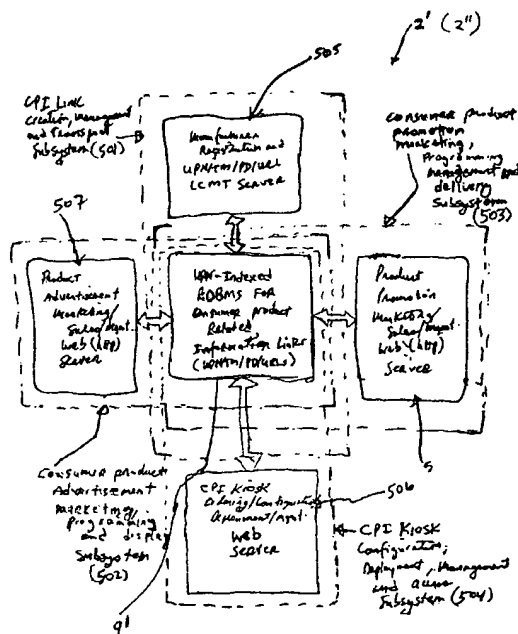 2' (2")
505
CPI Link
Creation, Management
and Transport
Subsystem (501)
Manufacturer
Registration and
UPN/TM/PD/URL
LCMT SERVER
Consumer product
promotion
marketing,
programming
management and
delivery
Subsystem
(503)
507
Product
Advertisement
Marketing/
Sales/Mgmt.
Web (http)
Server
UPN-Indexed
RDBMS FOR
Consumer product
Related
Information Links
(UPN/TM/PD/URLs)
Product
Promotion
Marketing/
Sales/Mgmt.
Web (http)
Server
5
Consumer product
Advertisement
marketing,
programming
and display
Subsystem
(502)
9'
CPI Kiosk
Ordering/Configuration
Deployment/Mgmt.
Web
Server
506
CPI Kiosk
Configuration,
Deployment, Management
and access
Subsystem (504)